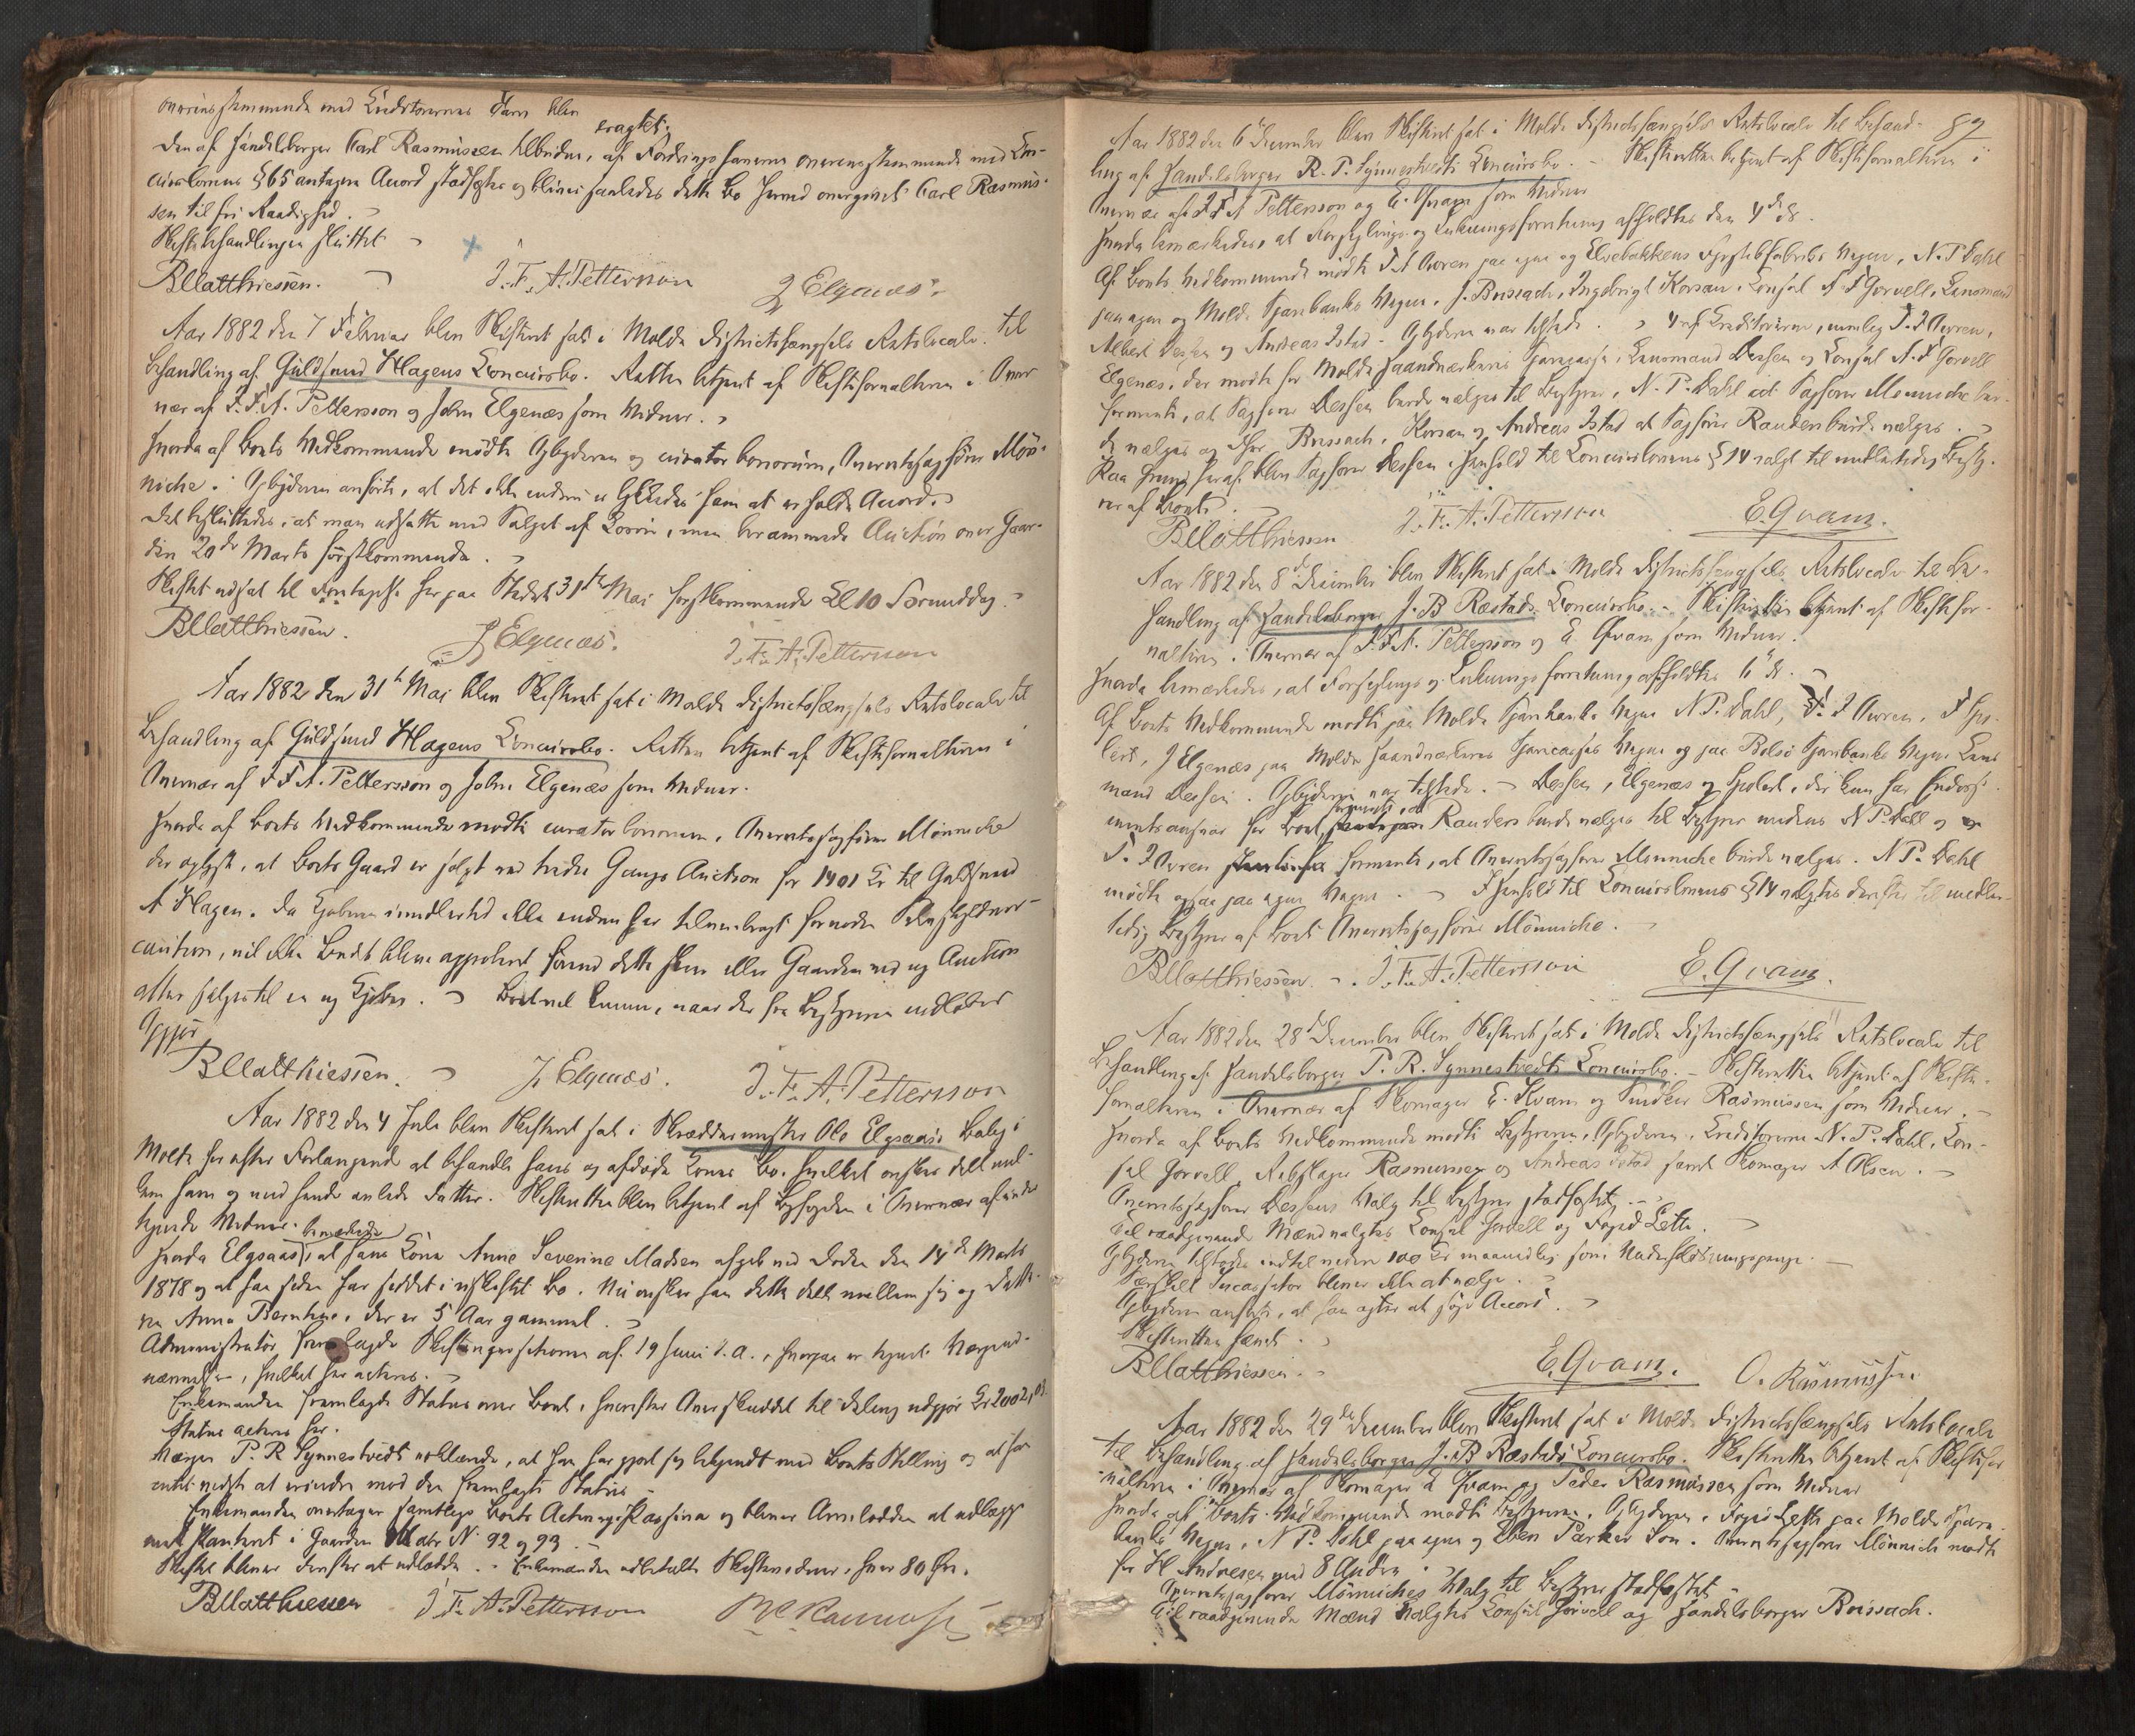 overensstemmende med Creditorernes Tarv blev
eragtet:
Den af Handelsborger Carl Rasmussen tilbudne, af Fordringshaverne overensstemmende med Con-
curslovens § 65 antagne Accord stadfæstes og bliver saaledes dette Bo herved overgivet Carl Rasmus-
sen til fri Raadighed.
Skiftebehandlingen sluttet
BMatthiessen. J. F. A. Pettersson J Elgenæs.
Aar 1882 den 7 Februar blev Skifteret sat i Molde Districtsfængsels Retslocale til
Behandling af Guldsmed Hagens Concursbo. Retten betjent af Skifteforvalteren i Over-
vær af J. F. A. Pettersson og John Elgenæs som Vidner.
Hvorda af Boets Vedkommende mødte Opbyderen og curator bonorum, Overretssagfører Mön-
niche. Opbyderen anførte, at det ikke endnu er lykkedes ham at erholde Accord.
Det besluttedes, at man udsatte med Salget af Løsøre, men berammede Auction over Gaar-
den 20de Marts førstkommende.
Skiftet udsat til Foretagelse her paa Stedet 31te Mai førstkommende Kl 10 Formiddag.
BMatthiessen. J Elgenæs. J. F. A. Pettersson
Aar 1882 den 31te Mai blev Skifteret sat i Molde Districtsfængsels Retslocale til
Behandling af Guldsmed Hagens Concursbo. Retten betjent af Skifteforvalteren i
Overvær af J F A. Pettersson og John Elgenæs som Vidner.
Hvorda af Boets Vedkommende mødte curator bonorum, Overretssagfører Mönniche
der oplyste, at Boets Gaard er solgt ved tredie Gangs Auction for 1401 Kr til Guldsmed
A Hagen. Da Kjøberen imidlertid ikke endnu har tilveiebragt fornøden Selvskyldner-
caution, vil ikke Budet blive approberet førend dette sker eller Gaarden ved ny Auction
atter sælges til en ny Kjøber. Boet vil kunne, naar der fra Bestyreren indløber
Opgjør
BMatthiessen. J. Elgenæs. J. F. A. Pettersson
Aar 1882 den 4 Juli blev Skifteret sat i Skræddermester Ole Elgsaas's Bolig i
Molde for efter Forlangende at behandle hans og afdøde Kones Bo, hvilket ønskes delt mel-
lem ham og med hende avlede Datter. Skifteretten blev betjent af Byfogden i Overvær af under-
tegnede Vidner.
Hvorda Elgsaas bemærkede, at hans Kone Anne Severine Madsen afgik ved Døden den 14de Marts
1878 og at han siden har siddet i uskiftet Bo. Nu ønsker han dette delt mellem sig og Datte-
ren Anna Bernhine, der er 5 Aar gammel.
Administrator fremlagde Skifteangivelsen af 19 Juni d. A., hvorpaa er tegnet Værgeop-
nævnelse, hvilket her acteres.
Enkemanden fremlagde Status over Boet, hvorefter Overskuddet til Deling udgjør Kr 2002,03.
Status acteres her.
Værgen P. R Synnestvedt erklærede, at han har gjort sig bekjendt med Boets Stilling og at han
intet vidste at erindre mod den fremlagte Status.
Enkemanden overtager samtlige Boets Activa og Passiva og bliver Arvelodden at udlægge
med Panteret i Gaarden Matr No 92 og 93.
Skiftet bliver derefter at udlodde. Enkemanden udbetalte Skiftevidner, hver 80 Øre.
BMatthiessen J. F. A. Pettersson
89
Aar 1882 den 6te December blev Skifteret sat i Molde Districtsfængsels Retslocale til Behand-
ling af Handelsborger R. P. Synnestvedts Concursbo. Skifteretten betjent af Skifteforvalteren i
Overvær af J F A Pettersson og E. Qvam som Vidner
Hvorda bemærkedes, at Forseglings- og Lukningsforretning afholdtes den 4de ds.
Af Boets Vedkommende mødte J A Owren paa egne og Elvebakkens Fyrstikfabriks Vegne, N. P Dahl
paa egne og Molde Sparebanks Vegne, J. Bussach, Ingebrigt Korsan, Konsul A F Gørvell, Lensmand
Albert Dessen og Andreas Istad. Opbyderen var tilstede. 4 af Creditorerne, nemlig J. J Owren,
Elgenæs, der mødte for Molde Haandværkeres Sparecasse, Lensmand Dessen og Konsul A. F Gørvell
formente, at Sagfører Dessen burde vælges til Bestyrer, N. P. Dahl at Sagfører Mönniche bur-
de vælges og Hr Bussach, Korsan og Andreas Istad at Sagfører Randers burde vælges.
Paa Grund heraf blev Sagfører Dessen i Henhold til Concurslovens § 14 valgt til midlertidig Besty-
rer af Boet.
BMatthiessen J. F. A. Pettersson E. Qvam.
Aar 1882 den 8de December blev Skifteret sat i Molde Districtsfængsels Retslocale til Be-
handling af Handelsborger J. B Ræstads Concursbo. Skifteretten betjent af Skiftefor-
valteren i Overvær af J. F A. Pettersson og E. Qvam som Vidner.
Hvorda bemærkedes, at Forseglings og Lukningsforretning afholdtes 6te ds.
Af Boets Vedkommende mødte paa Molde Sparebanks Vegne N P. Dahl, J. J Owren,
J Elgenæs paa Molde Haandværkeres Sparecasses Vegne og paa Bolsø Sparebanks Vegne Lens-
mand Dessen. Opbyderen var tilstede. Dessen, Elgenæs og, der kun har Endosse-
mentsansvar for Boet, formente, at Randers burde vælges til Bestyrer medens N P. Dahl og
J. J Owren formente, at Overretssagfører Mönniche burde vælges. N P. Dahl
mødte ogsaa paa egne Vegne. I Henhold til Concurslovens § 14 valgtes derefter til midler-
tidig Bestyrer af Boet Overretssagfører Mönniche.
BMatthiessen. J. F. A. Pettersson E. Qvam.
Aar 1882 den 28de December blev Skifteret sat i Molde Districtsfængsels Retslocale til
Behandling af Handelsborger P. R. Synnestvedts Concursbo. Skifteretten betjent af Skifte-
forvalteren i Overvær af Skomager E. Kvam og Snedker Rasmussen som Vidner.
Hvorda af Boets Vedkommende mødte Bestyreren, Opbyderen, Creditorerne N. P. Dahl, Kon-
sul Gørvell, Rebslager Rasmussen og Andreas Istad samt Skomager A Olsen.
Overretssagfører Dessens Valg til Bestyrer stadfæstet.
Til raadgivende Mænd valgtes Konsul Gørvell og Foged Lette.
Opbyderen tilstodes indtil videre 100 Kr maanedlig som Underholdningspenge.
Særskilt Incassator bliver ikke at vælge.
Opbyderen anførte, at han agter at søge Accord.
Skifteretten hævet.
BMatthiessen. E. Qvam. O. Rasmussen
Aar 1882 den 29de December blev Skifteret sat i Molde Districtsfængsels Retslocale
til Behandling af Handelsborger J. B Ræstads Concursbo. Skifteretten betjent af Skiftefor-
valteren i Overvær af Skomager E Qvam og Peder Rasmussen som Vidner
Hvorda af Boets Vedkommende mødte Bestyreren, Opbyderen, Foged Lette paa Molde Spare-
banks Vegne, N P. Dahl paa egne og Eben Parker Son. Overretssagfører Mönniche mødte
for H Andresen med 8 Andre
Overretssagfører Mönniches Valg til Bestyrer stadfæstet
Til raadgivende Mænd valgtes Konsul Gørvell og Handelsborger Bussach.